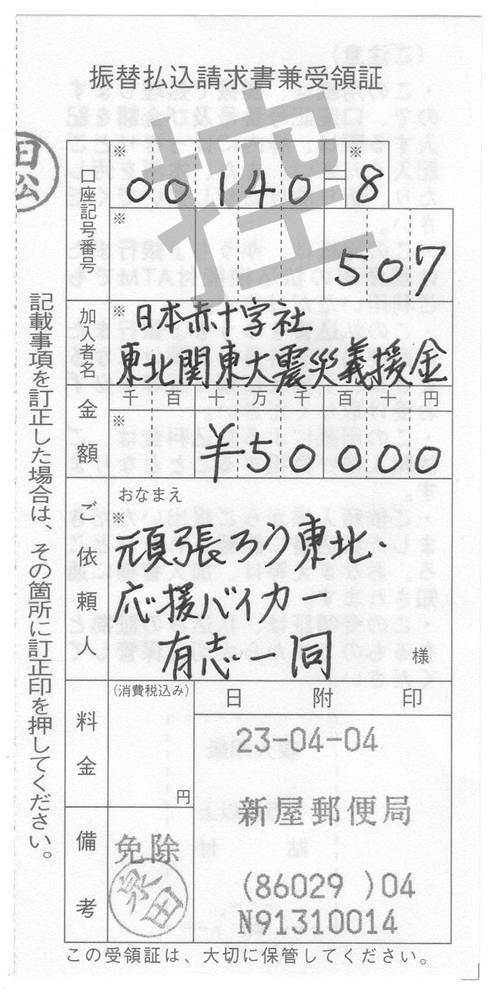 振替払込請求書兼受領証
控
口座記号番号
※ 00140=8 ※
※ 507
加入者名
※ 日本赤十字社
東北関東大震災義援金
金額
千 百 十 万 千 百 十 円
※ ¥50000
ご依頼人
おなまえ
※ 頑張ろう東北・
応援バイカー
有志一同 様
料金
(消費税込み)
円
日 附 印
23-04-04
新屋郵便局
(86029 )04
N91310014
備考
免除
泉田
この受領証は、大切に保管してください。
記載事項を訂正した場合は、その箇所に訂正印を押してください。